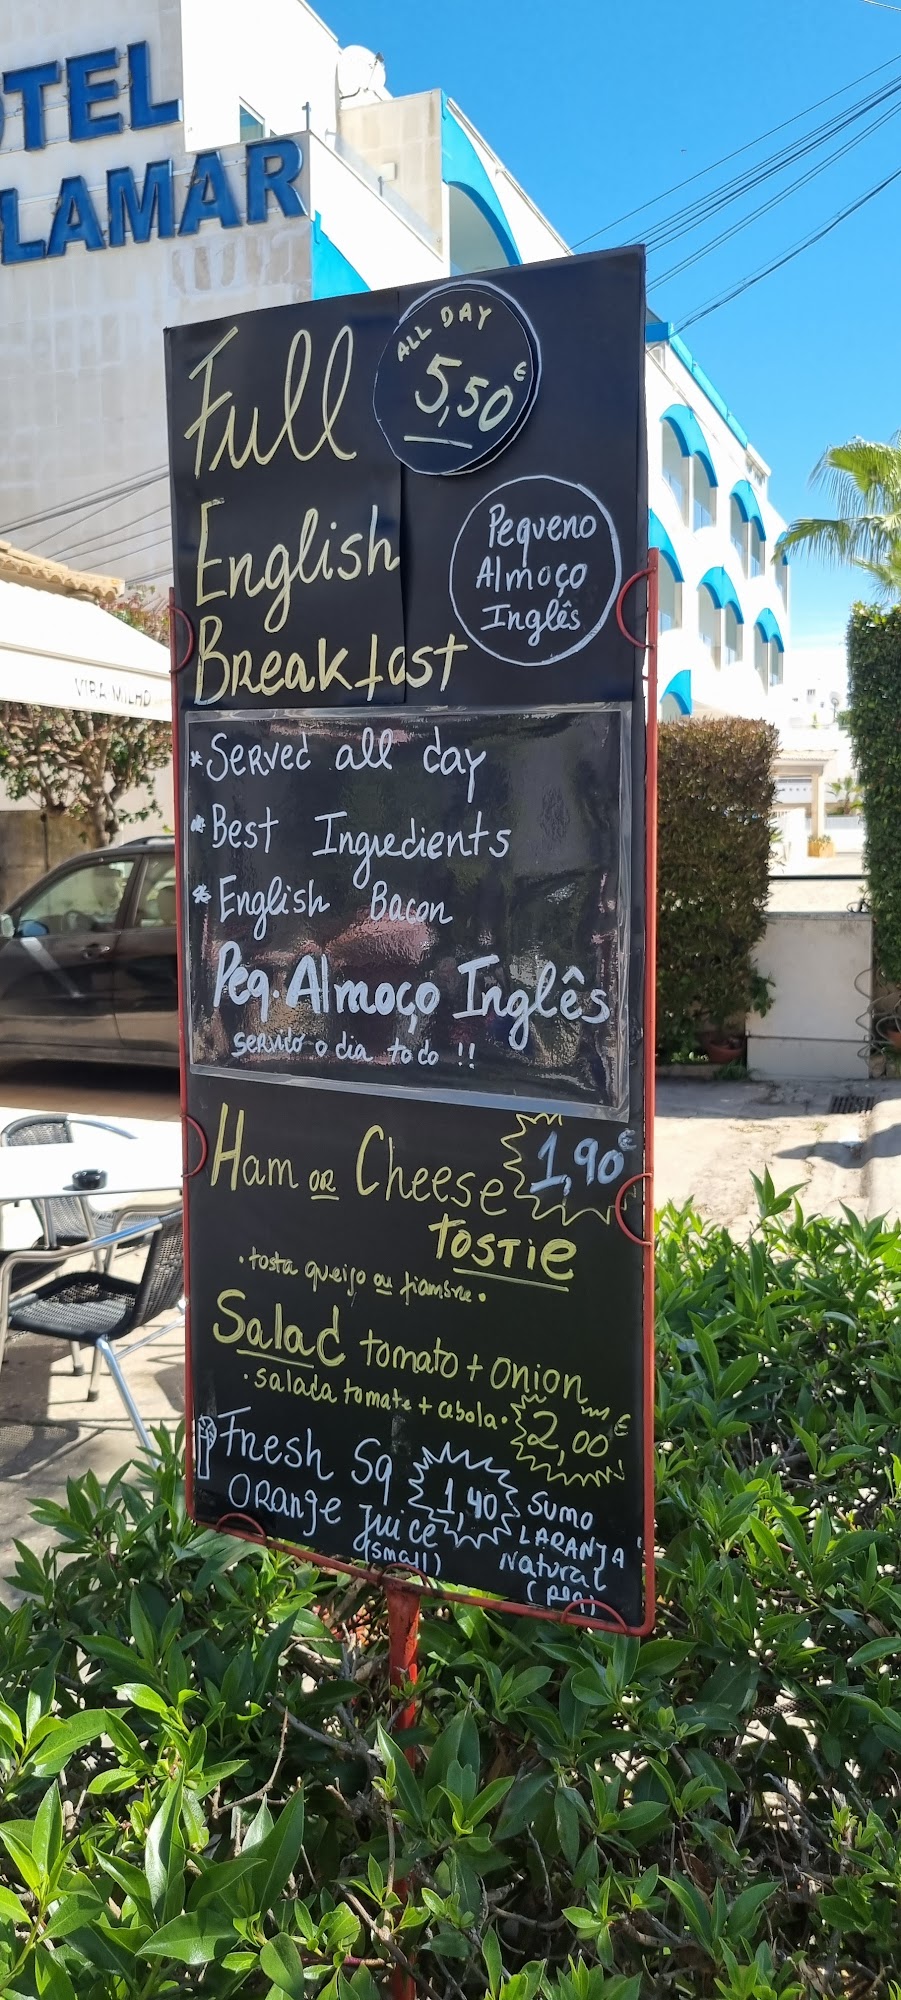 OTEL
LAMAR
VIRA MILHO
Full
ALL DAY
5,50€
English
Breakfast
Pequeno
Almoço
Inglês
* Served all day
* Best Ingredients
* English Bacon
Peq. Almoço Inglês
servido o dia todo !!
Ham OR Cheese
1,90€
TOSTIE
. tosta queijo ou fiambre .
Salad tomato + onion
. salada tomate + cebola .
2,00€
Fresh Sq
Orange Juice
(small)
1,40
SUMO
LARANJA
Natural
(peq)